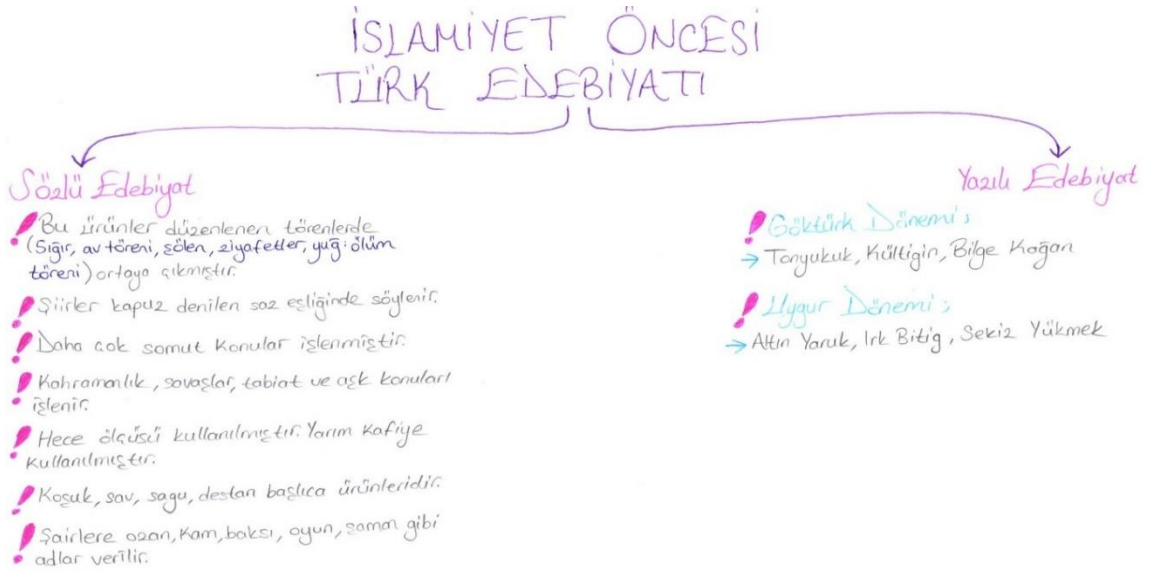 İSLAMİYET ÖNCESİ
TÜRK EDEBİYATI
Sözlü Edebiyat
! Bu ürünler düzenlenen törenlerde
(Sığır, av töreni, şölen, ziyafetler, yuğ: ölüm
töreni) ortaya çıkmıştır.
! Şiirler kapuz denilen saz eşliğinde söylenir.
! Daha çok somut konular işlenmiştir.
! Kahramanlık, savaşlar, tabiat ve aşk konuları
işlenir.
! Hece ölçüsü kullanılmıştır. Yarım Kafiye
kullanılmıştır.
! Koşuk, sav, sagu, destan başlıca ürünleridir.
! Şairlere ozan, Kam, baksı, oyun, şaman gibi
adlar verilir.
Yazılı Edebiyat
! Göktürk Dönemi;
→ Tonyukuk, Kültigin, Bilge Kağan
! Uygur Dönemi;
→ Altın Yaruk, Irk Bitig, Sekiz Yükmek